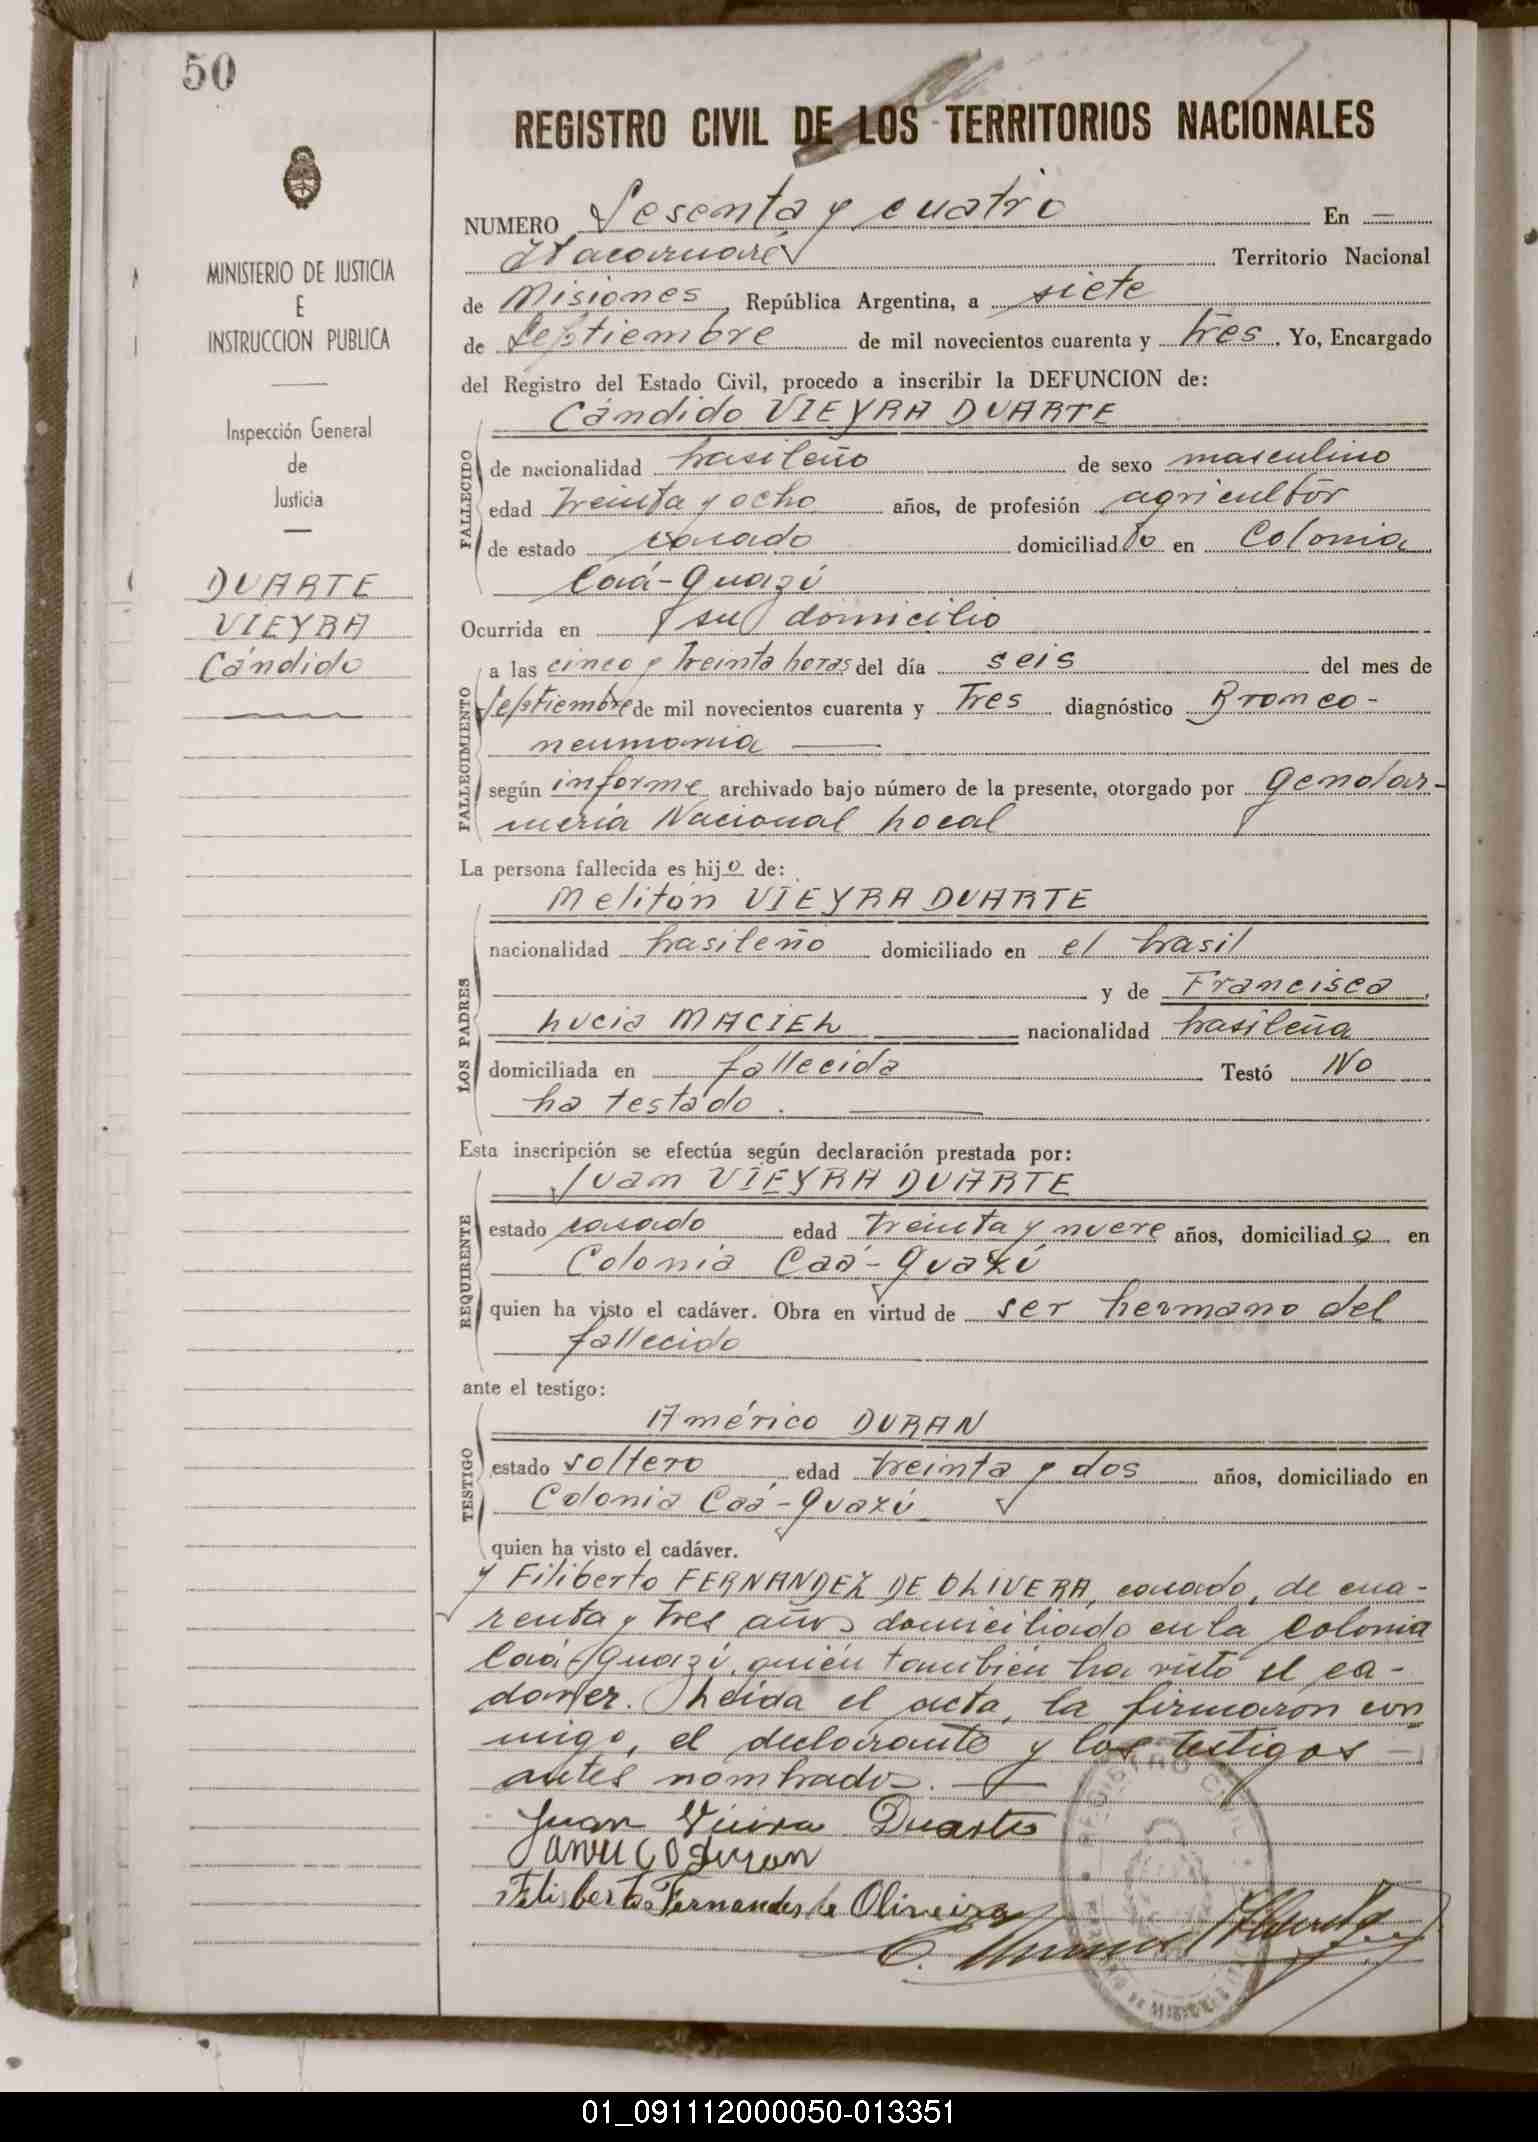 50
REGISTRO CIVIL DE LOS TERRITORIOS NACIONALES
MINISTERIO DE JUSTICIA
E
INSTRUCCION PUBLICA
Inspección General
de
Justicia
DUARTE
VIEYRA
Cándido
NUMERO Sesenta y cuatro En —
Itacaruaré Territorio Nacional
de Misiones, República Argentina, a siete
de Septiembre de mil novecientos cuarenta y tres. Yo, Encargado
del Registro del Estado Civil, procedo a inscribir la DEFUNCION de:
FALLECIDO
Cándido VIEYRA DUARTE
de nacionalidad brasileño de sexo masculino
edad treinta y ocho años, de profesión agricultor
de estado casado domiciliado en Colonia
Caá-Guazú
Ocurrida en su domicilio
FALLECIMIENTO
a las cinco y treinta horas del día seis del mes de
Septiembre de mil novecientos cuarenta y tres diagnóstico Bronco-
neumonia —
según informe archivado bajo número de la presente, otorgado por Gendar-
meria Nacional Local
La persona fallecida es hijo de:
LOS PADRES
Melitón VIEYRA DUARTE
nacionalidad brasileño domiciliado en el brasil
y de Francisca
Lucia MACIEL nacionalidad brasileña
domiciliada en fallecida Testó No
ha testado. —
Esta inscripción se efectúa según declaración prestada por:
REQUIRENTE
Juan VIEYRA DUARTE
estado casado edad treinta y nueve años, domiciliado en
Colonia Caá-Guazú
quien ha visto el cadáver. Obra en virtud de ser hermano del
fallecido
ante el testigo:
TESTIGO
Américo DURAN
estado soltero edad treinta y dos años, domiciliado en
Colonia Caá-Guazú
quien ha visto el cadáver.
y Filiberto FERNANDEZ DE OLIVERA, casado, de cua-
renta y tres años domiciliado en la Colonia
Caá-Guazú, quién también ha visto el ca-
daver. Leida el acta, la firmaron con
migo, el declarante y los testigos —
antes nombrados. —
Juan Vieira Duarte
Duran
Felisberto Fernandes de Oliveira
REGISTRO CIVIL
01_091112000050-013351